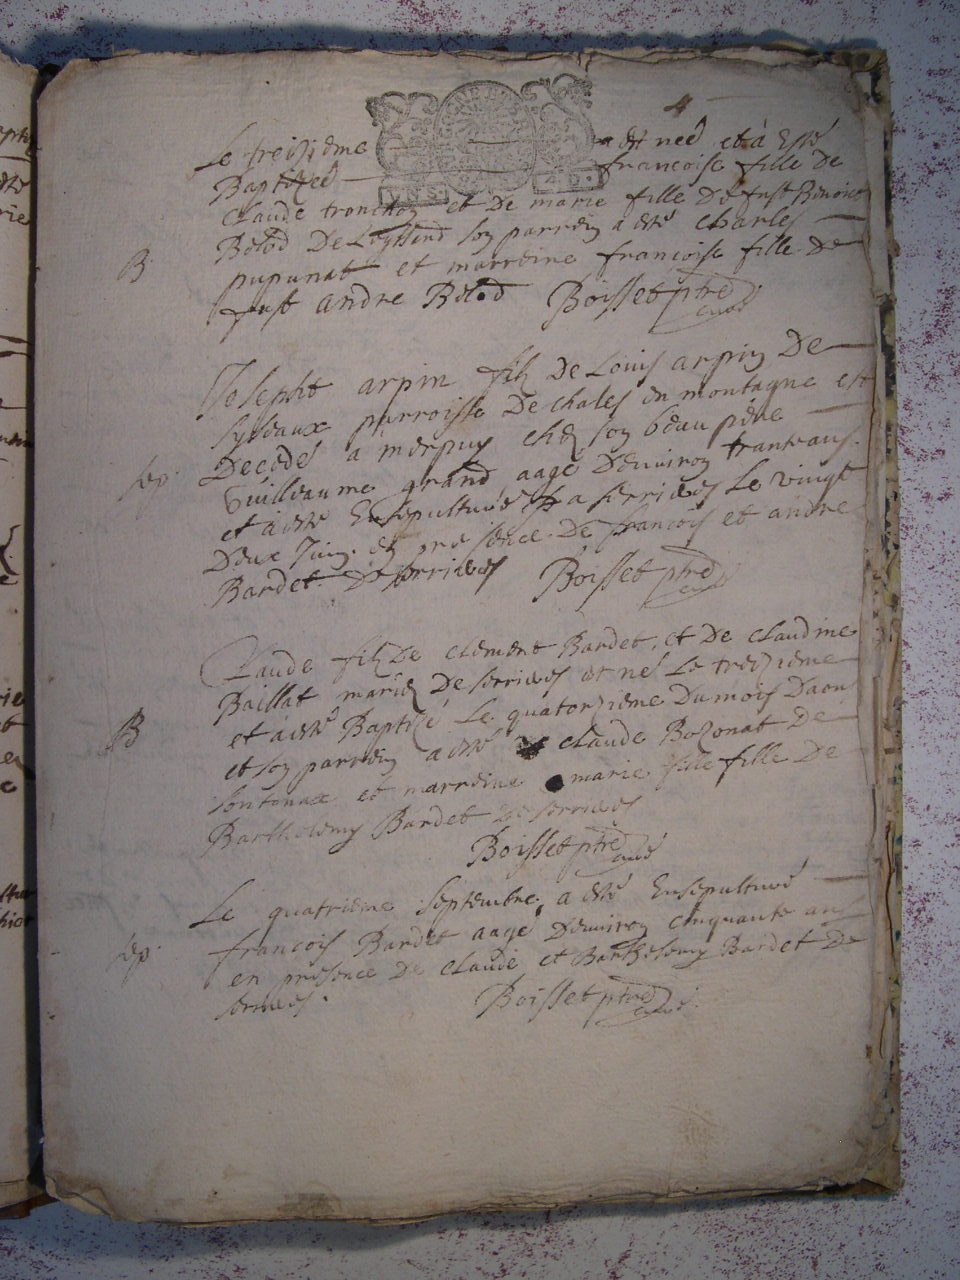 4
Le treizieme est neé et a Esté
Baptizeé francoise fille de
claude tronchon et de marie fille de fust Benoict
Bolod De Leyssard son parrein a esté charles
B pupunat et marreine francoise fille de
fust andre Bolod Boisset ptre curé
Joseph arpin filz De Louis arpin De
parroisse De chales en montagne est
sep. Decedé a merpuy chez son beau pere
Guilleaume grand aagé Denviron tranteans
et a esté Ensepulturé a serrieres Le vingt
Deux Juin en presence De francois et andre
Bardet De serrieres Boisset ptre curé
Claude filz De clement Bardet, et De claudine
Baillat mariez De serrieres est né Le treizieme
B et a esté Baptizé Le quatorzieme Du mois Daou
et son parrein a esté claude Bozonat De
sontonax et marreine marie fille De
Barthelemy Bardet De serrieres
Boisset ptre curé
Le quatrieme Septembre, a esté Ensepulturé
sep. francois Bardet aagé Denviron cinquante ans
en presence De claude et Barthelemy Bardet De
serrieres. Boisset ptre curé